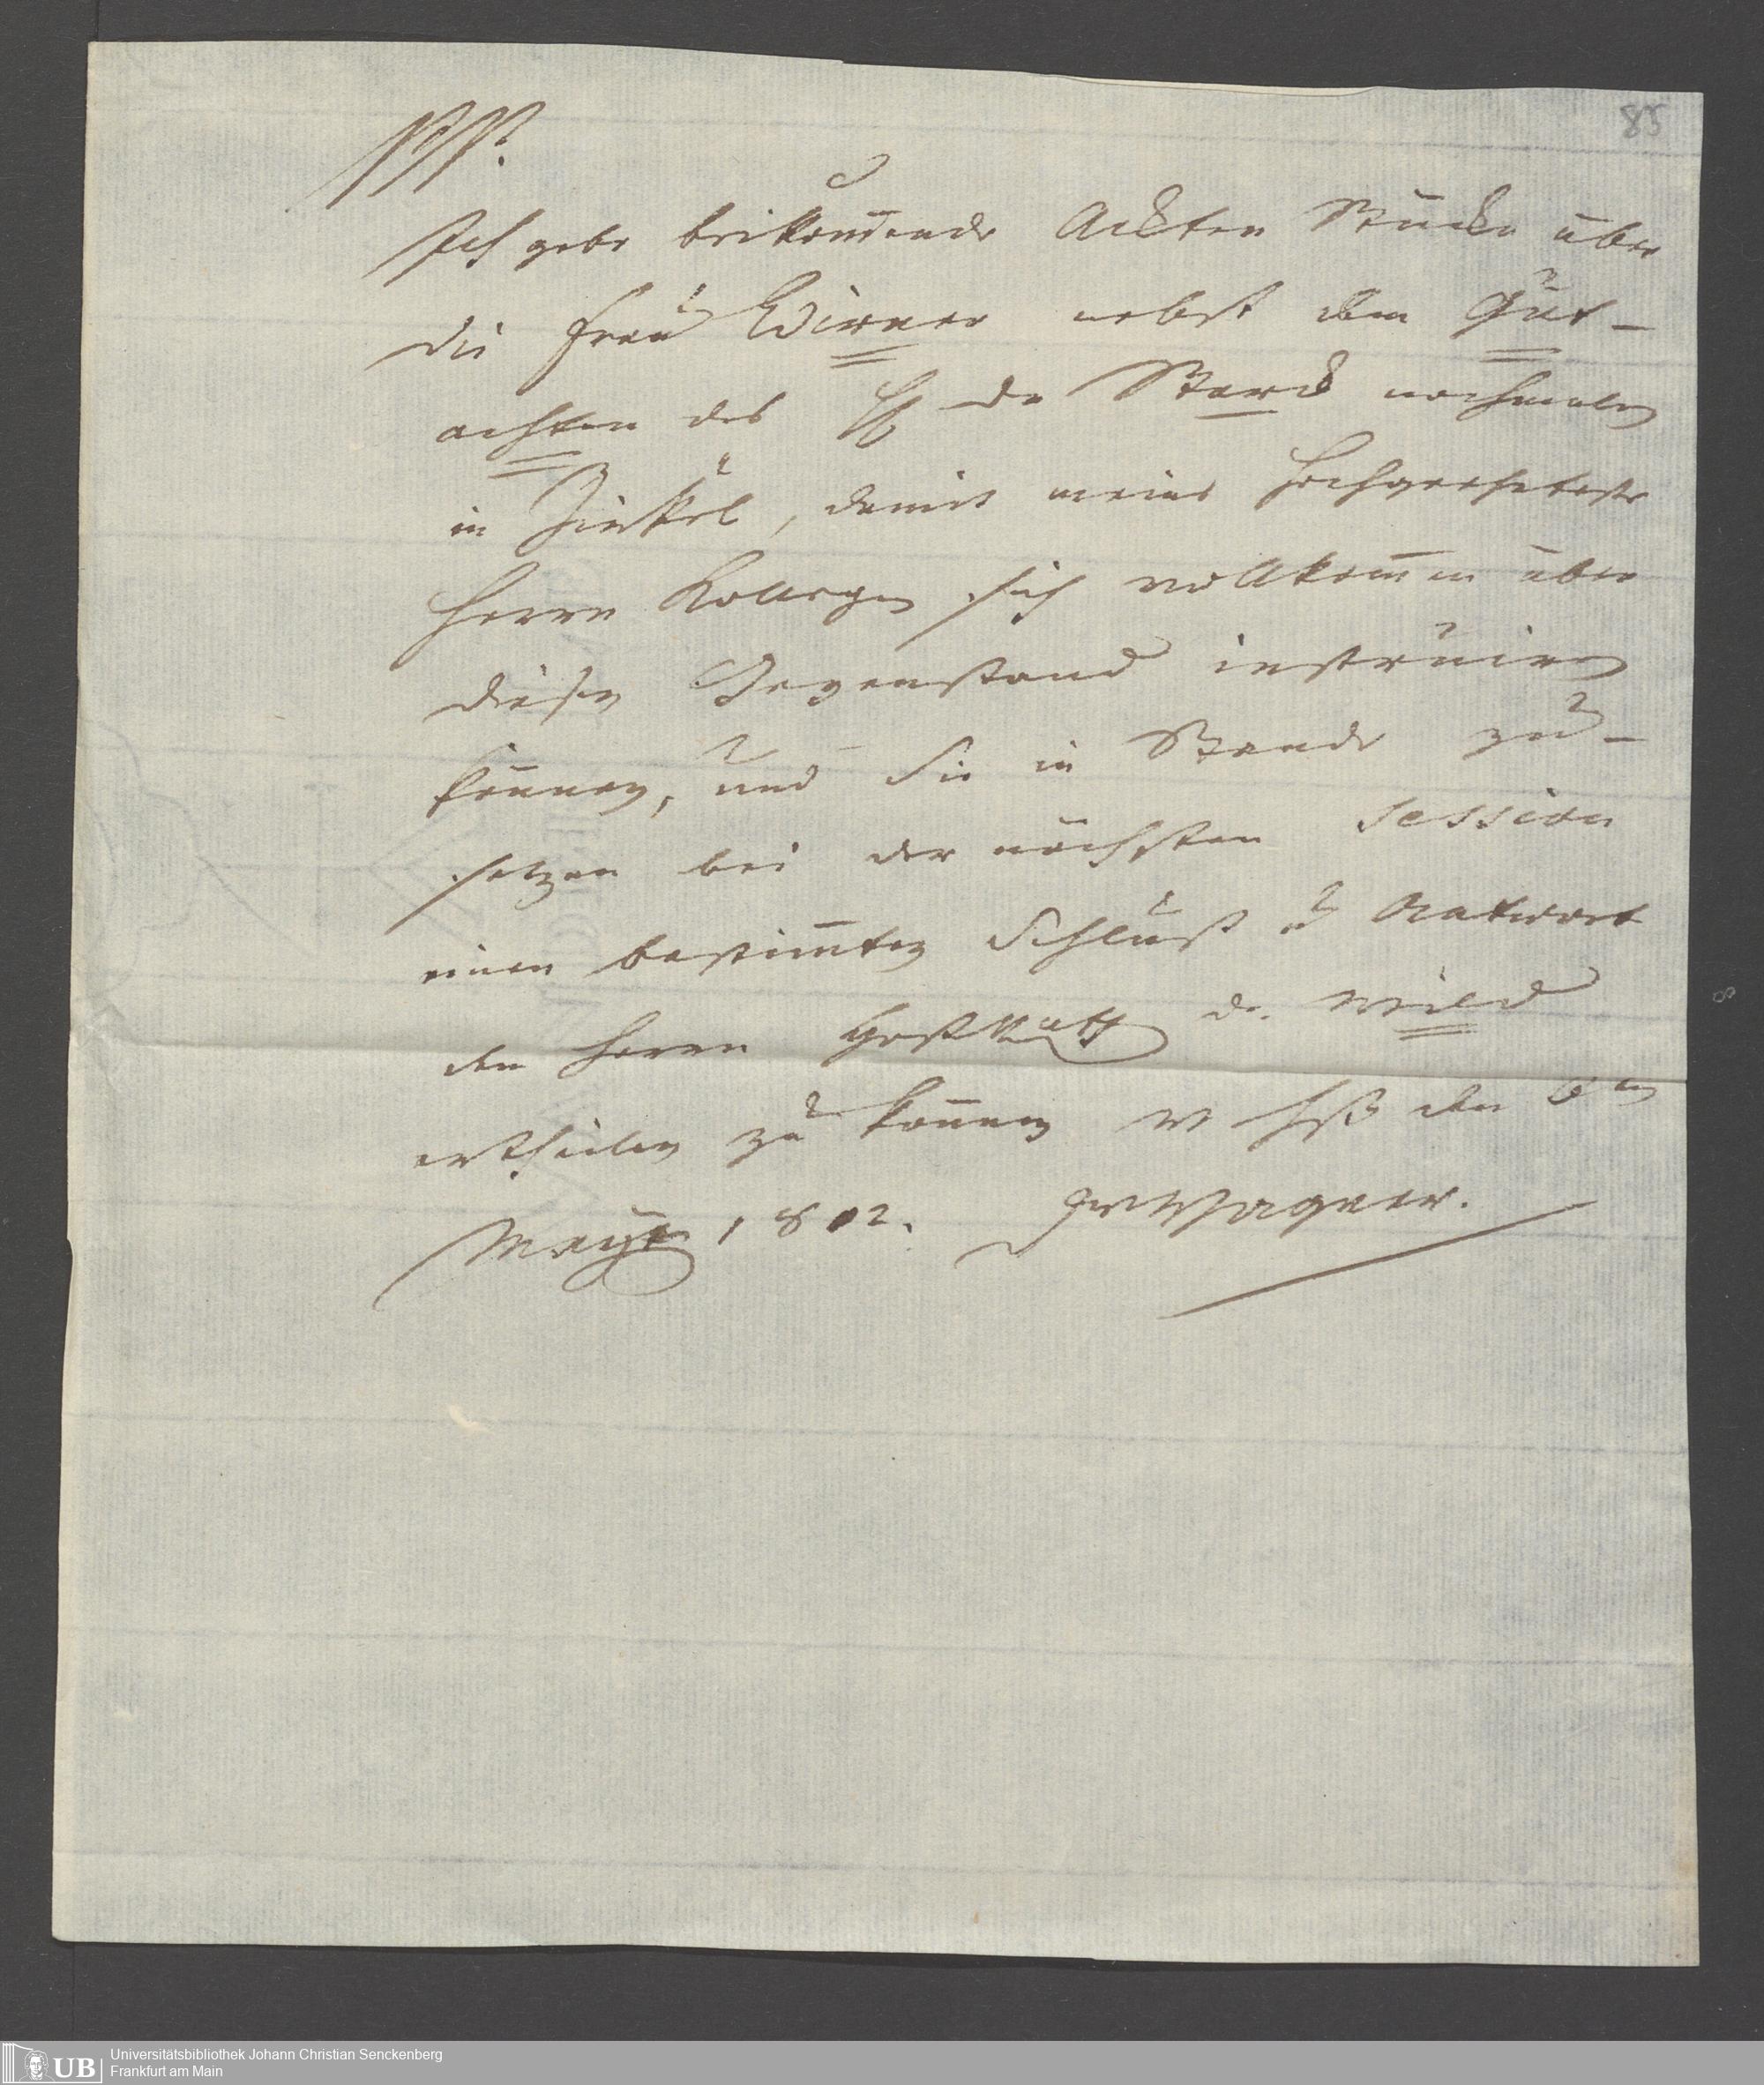 85
PP.
Ich gebe beikom̅ende Ackten Stücke über
die Frau Widmer nebst dem Gut-
achten des H de Starck nochmalen
in Zirkel, damit meine hochgeehrteste
Herrn Kollegen sich vollkom̅en über
diesen Gegenstand instruiren
können, und Sie in Stande zu-
setzen bei der nächsten Session
einen bestim̅ten Schluß u Antwort
den Herrn Hofrath de Weild
ertheilen zu können den 6ten
May 1802. Wagner.
UB
Universitätsbibliothek Johann Christian Senckenberg
Frankfurt am Main